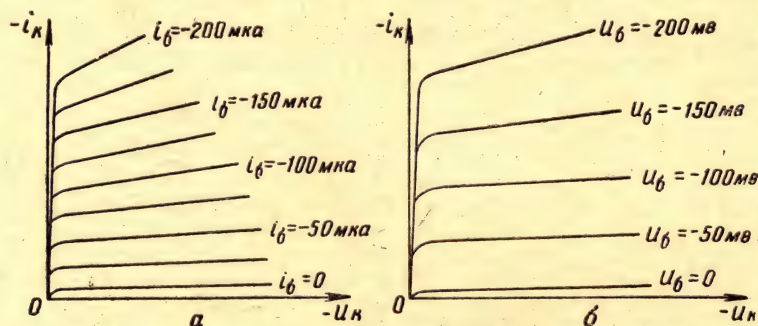 -iк
iб=-200мка
iб=-150мка
iб=-100мка
iб=-50мка
iб=0
0
-Uк
а
-iк
Uб=-200мв
Uб=-150мв
Uб=-100мв
Uб=-50мв
Uб=0
0
-Uк
б